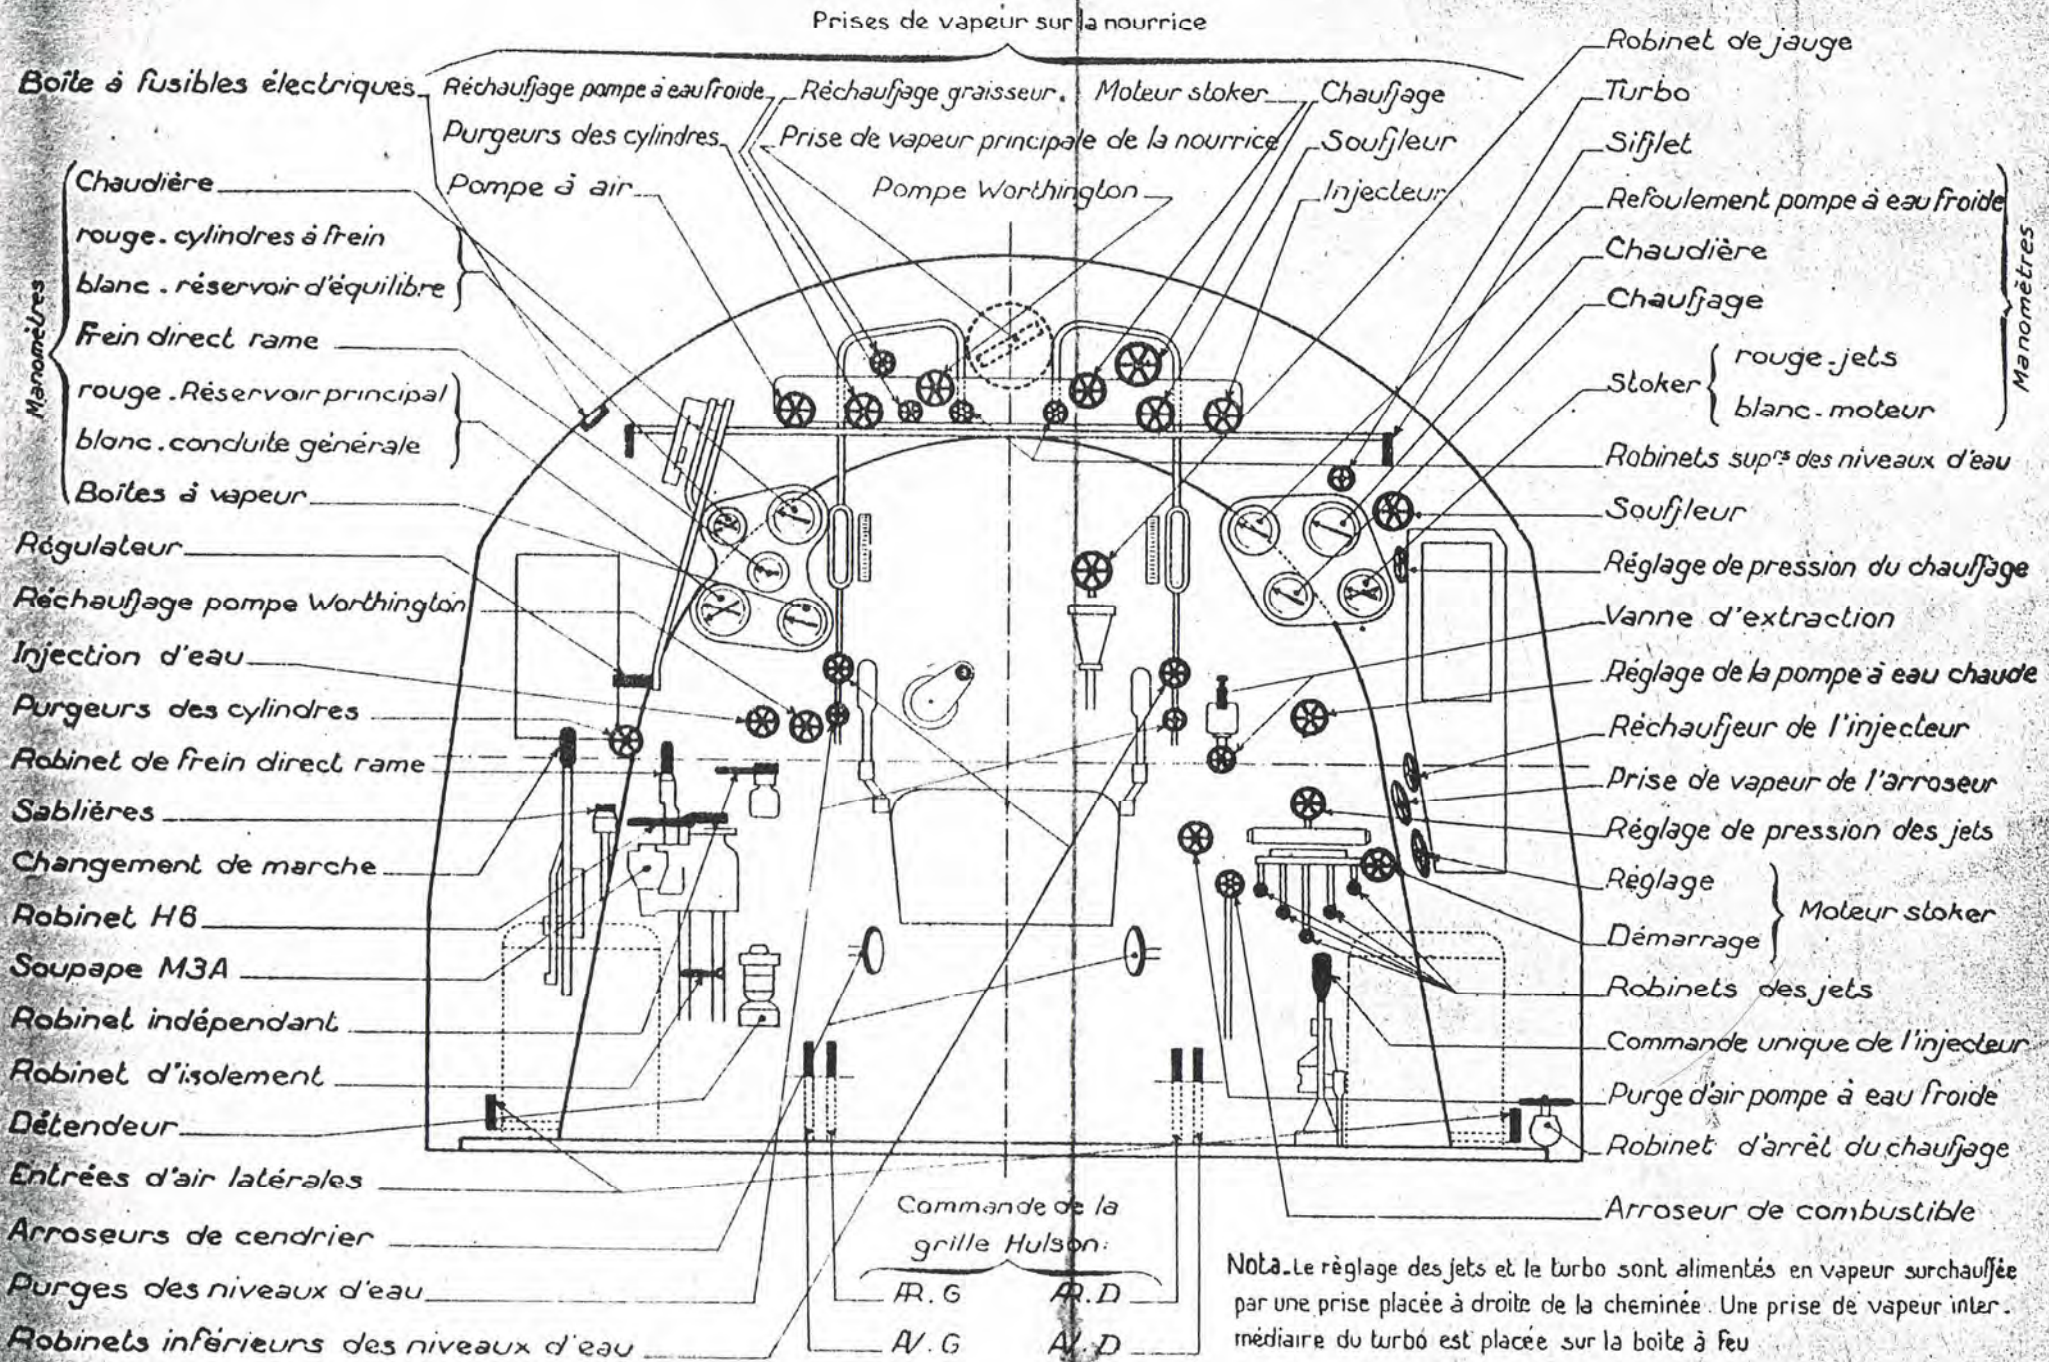 Prises de vapeur sur la nourrice
Boîte à fusibles électriques
Réchauffage pompe à eau froide
Réchauffage graisseur.
Moteur stoker
Chauffage
Purgeurs des cylindres
Prise de vapeur principale de la nourrice
Souffleur
Pompe à air
Pompe Worthington
Injecteur
Manomètres
Chaudière
rouge. cylindres à frein
blanc. réservoir d'équilibre
Frein direct rame
rouge. Réservoir principal
blanc. conduite générale
Boîtes à vapeur
Régulateur
Réchauffage pompe Worthington
Injection d'eau
Purgeurs des cylindres
Robinet de frein direct rame
Sablières
Changement de marche
Robinet H6
Soupape M3A
Robinet indépendant
Robinet d'isolement
Détendeur
Entrées d'air latérales
Arroseurs de cendrier
Purges des niveaux d'eau
Robinets inférieurs des niveaux d'eau
Commande de la
grille Hulson:
AR. G AR. D
AV. G AV. D
Robinet de jauge
Turbo
Sifflet
Refoulement pompe à eau froide
Chaudière
Chauffage
Stoker
rouge-jets
blanc-moteur
Manomètres
Robinets sup.rs des niveaux d'eau
Souffleur
Réglage de pression du chauffage
Vanne d'extraction
Réglage de la pompe à eau chaude
Réchauffeur de l'injecteur
Prise de vapeur de l'arroseur
Réglage de pression des jets
Réglage
Démarrage
Moteur stoker
Robinets des jets
Commande unique de l'injecteur
Purge d'air pompe à eau froide
Robinet d'arrêt du chauffage
Arroseur de combustible
Nota. Le règlage des jets et le turbo sont alimentés en vapeur surchauffée
par une prise placée à droite de la cheminée. Une prise de vapeur inter-
médiaire du turbo est placée sur la boite à feu